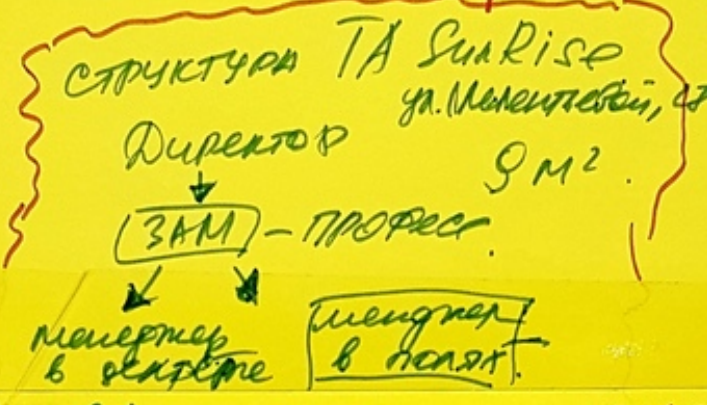 структура ТА SunRise
ул. Мелентьевой,
Директор
9 м².
ЗАМ - професс.
менеджер в декрете
менеджер в полях